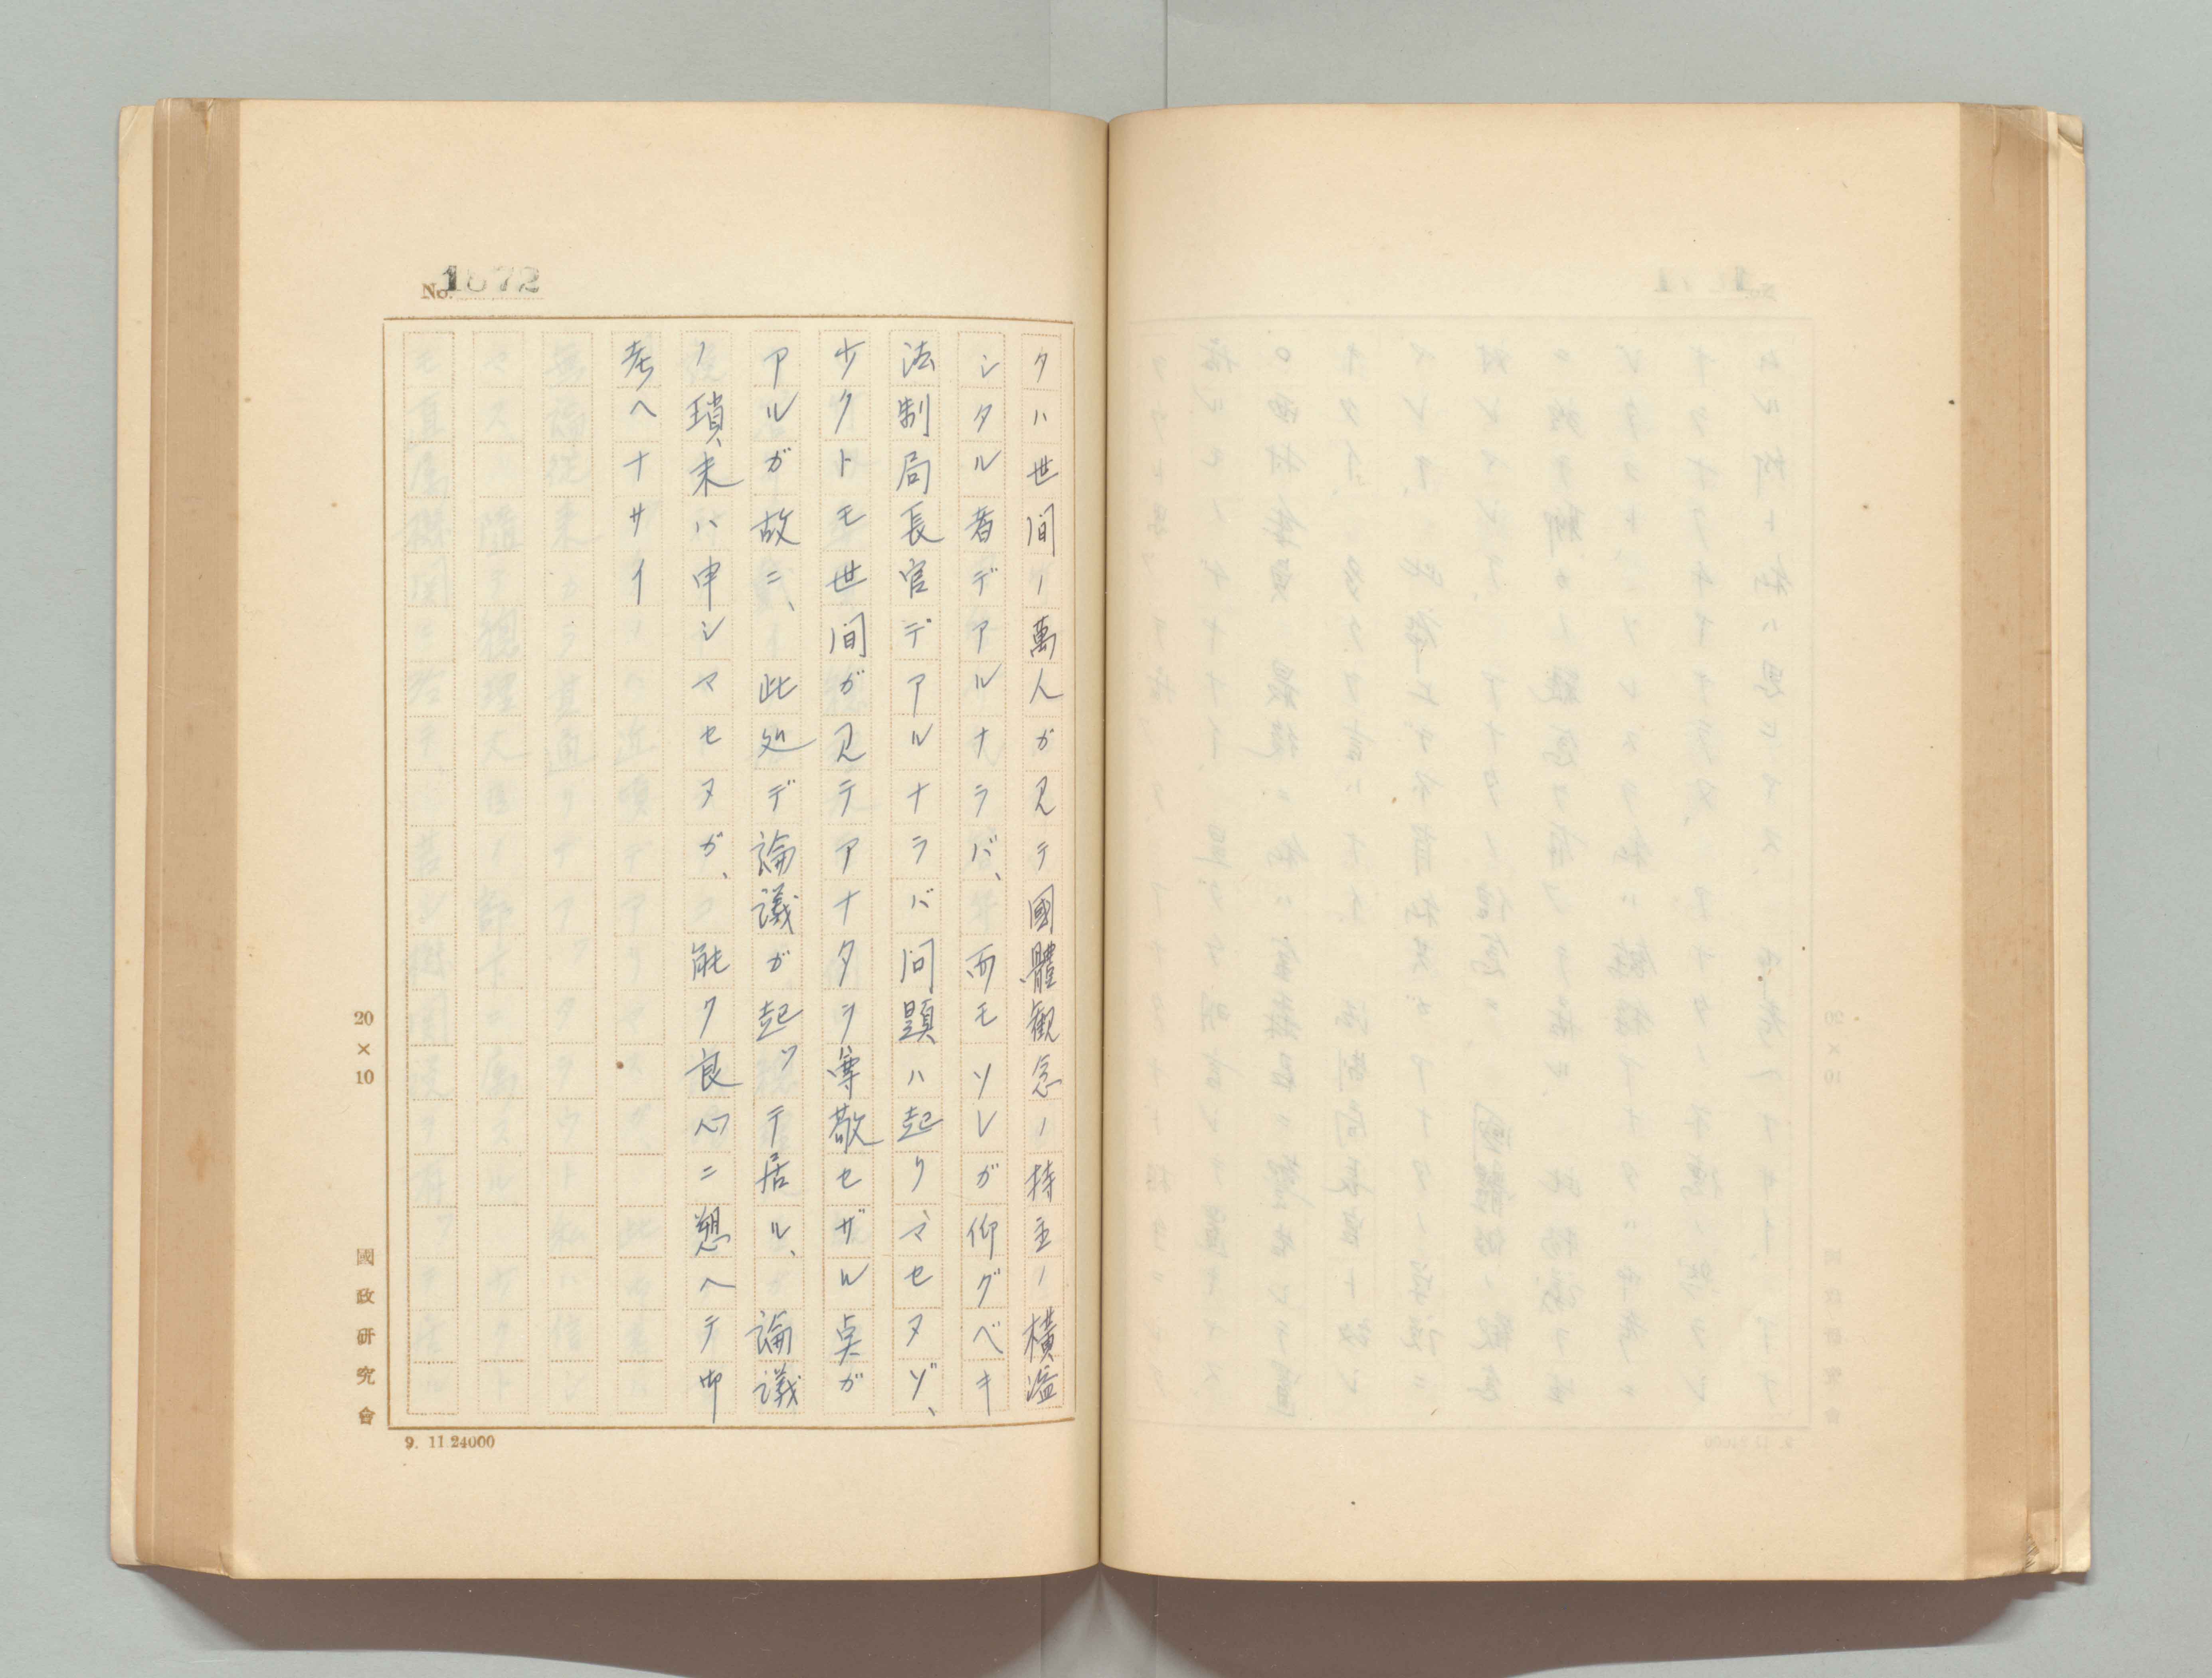 No. 1872
クハ世間ノ萬人ガ見テ國體観念ノ持主ノ横溢
シタル者デアルナラバ、而モソレガ仰グベキ
法制局長官デアルナラバ問題ハ起リマセヌゾ、
少クトモ世間ガ見テアナタヲ尊敬セザル点ガ
アルガ故ニ、此処デ論議ガ起ツテ居ル、論議
ノ瑣末ハ申シマセヌガ、能ク良心ニ愬ヘテ御
考ヘナサイ
20×10
國政研究會
9. 11.24000